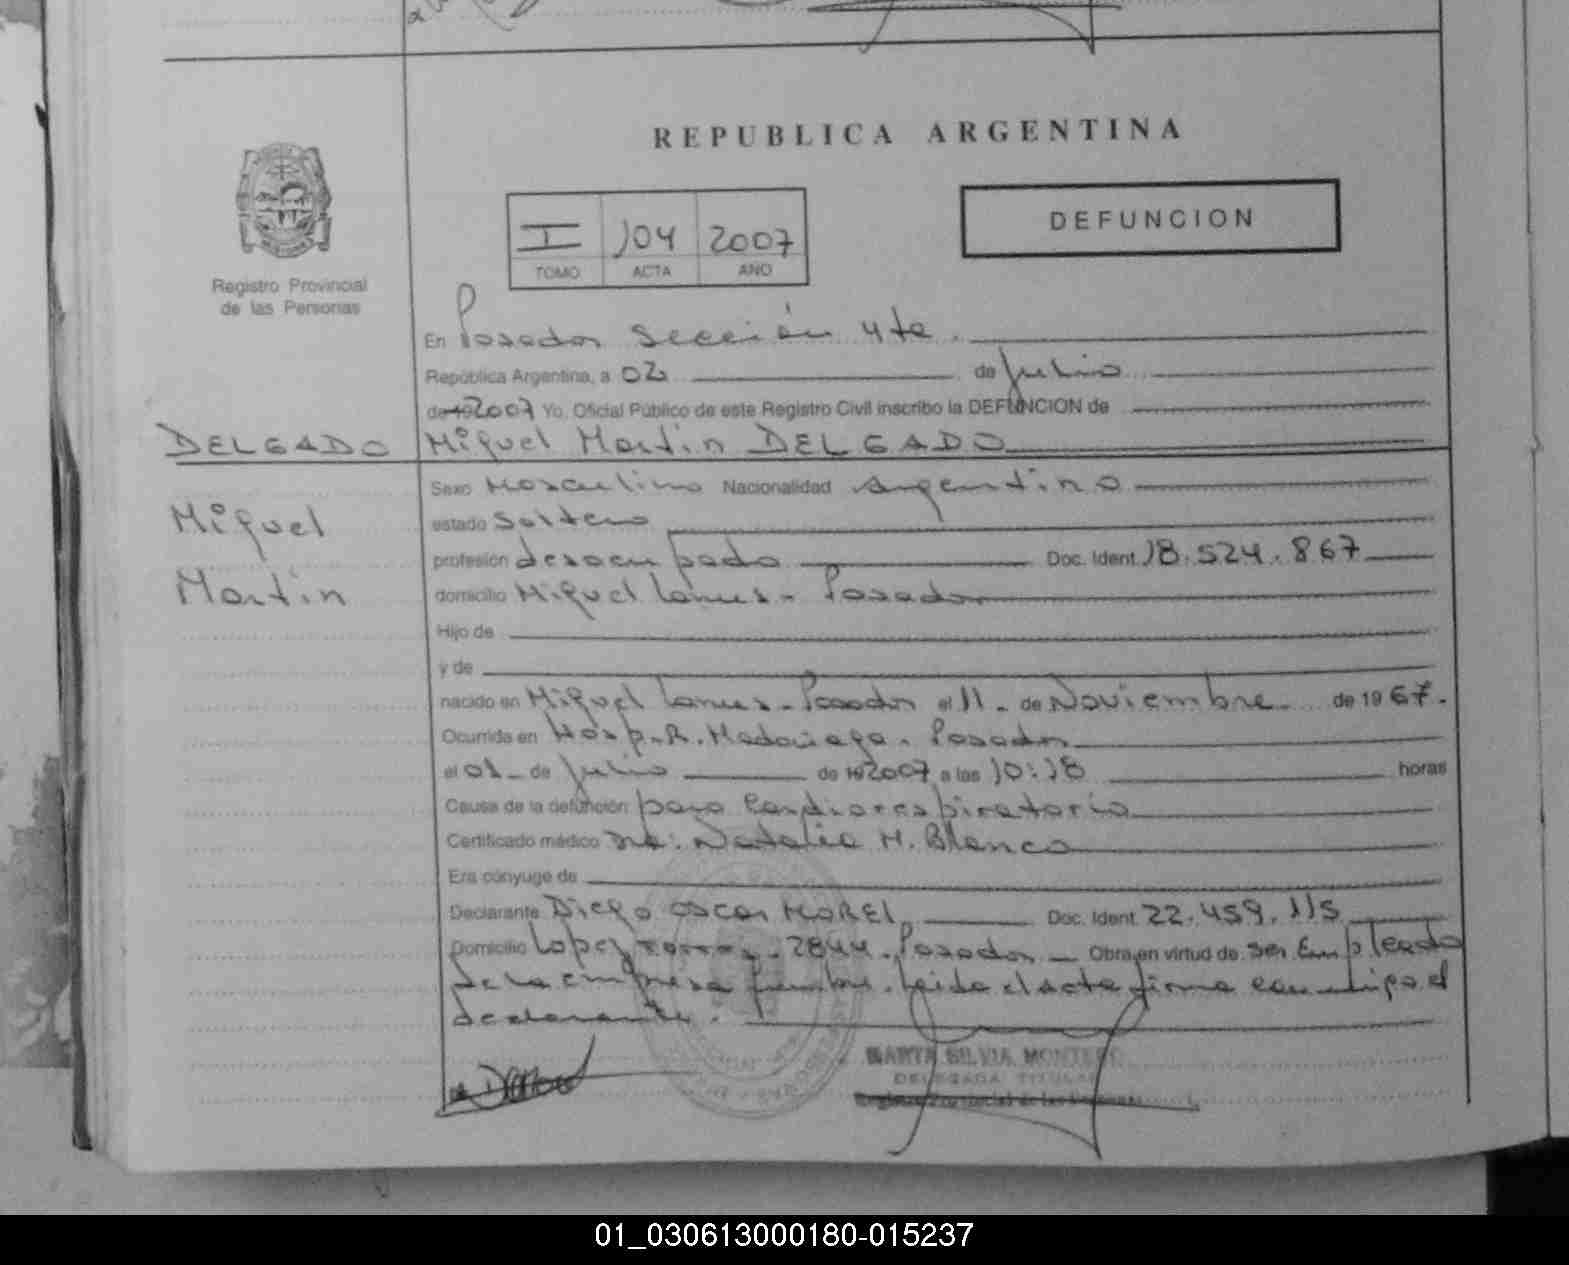 REPUBLICA ARGENTINA
DEFUNCION
I 104 2007
TOMO ACTA AÑO
Registro Provincial
de las Personas
En Posadas Sección 4ta.
República Argentina, a 02 de Julio
de 19 2007 Yo, Oficial Público de este Registro Civil inscribo la DEFUNCION de
DELGADO Miguel Martin DELGADO
Miguel
Martin
Sexo Masculino Nacionalidad Argentina
estado Soltero
profesión desocupado Doc. Ident. 18.524.867
domicilio Miguel Lanus - Posadas
Hijo de
y de
nacido en Miguel Lanus - Posadas el 11 - de Noviembre de 1967.
Ocurrida en Hosp. R. Madariaga. Posadas
el 01 - de Julio de 19 2007 a las 10:18 horas
Causa de la defunción paro Cardiorespiratorio
Certificado médico Dra: Natalia M. Blanco
Era cónyuge de
Declarante Diego Oscar MOREL Doc. Ident. 22.459.115
Domicilio Lopez Torres - 2844 - Posadas Obra en virtud de ser Empleado
de la empresa funebre. Leida el acta firma conmigo el
declarante.
MARTA SILVIA MONTERO
DELEGADA TITULAR
Registro Provincial de las Personas
01_030613000180-015237